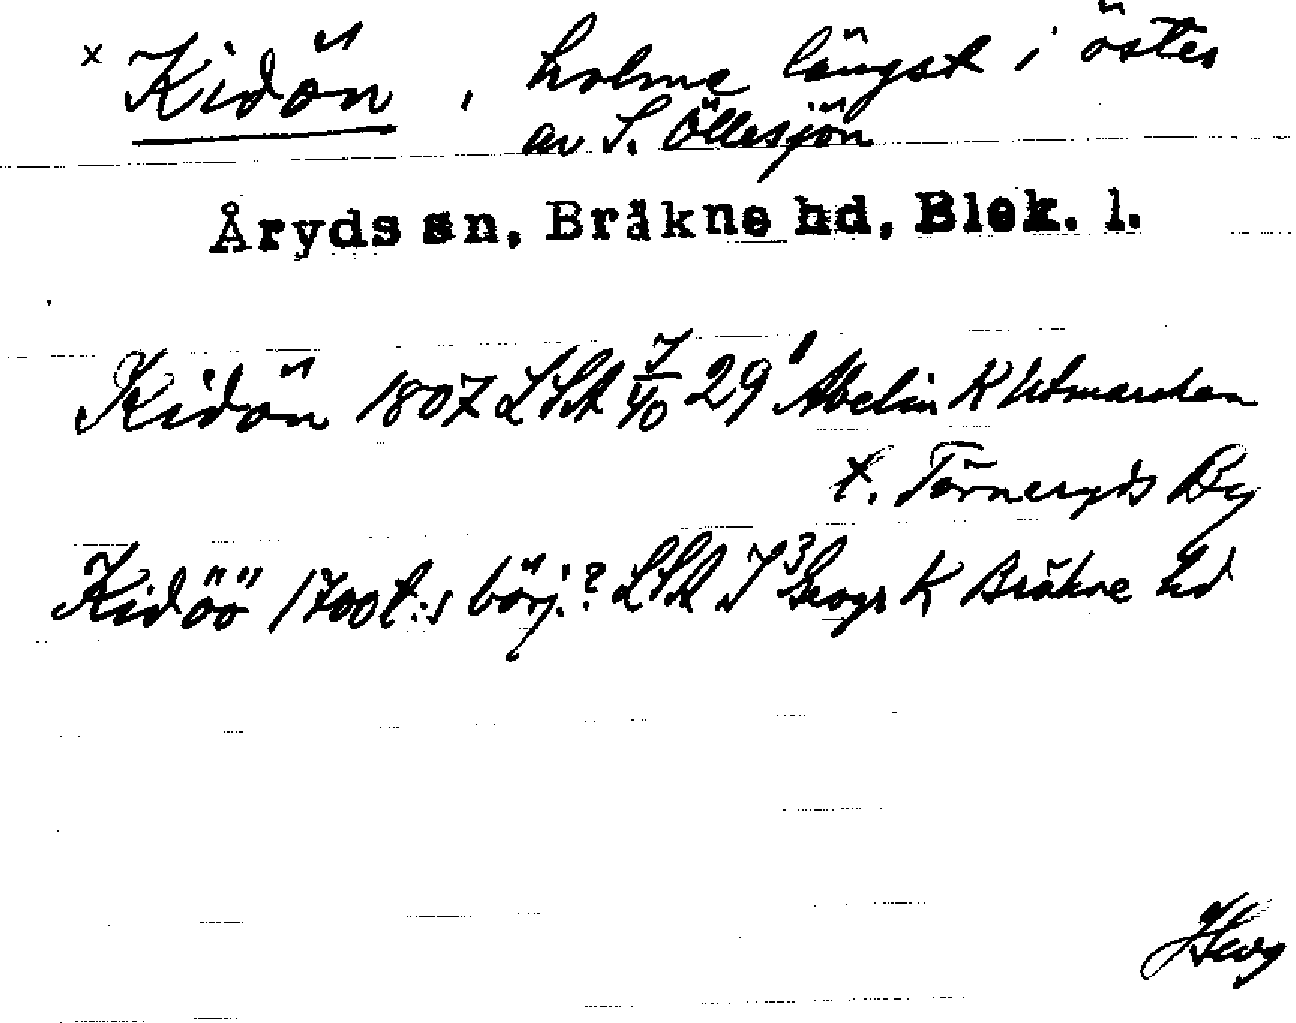 x Kidön, holme längst i öster
av S. Öllesjön
Åryds sn, Bräkne hd, Blek. l.
Kidön 1807 LSA 1/10 29 Abelin K Utmarken
t. Törneryds By
Kidöö 1700t:s börj.? LSA Geogr K Bräkne hd